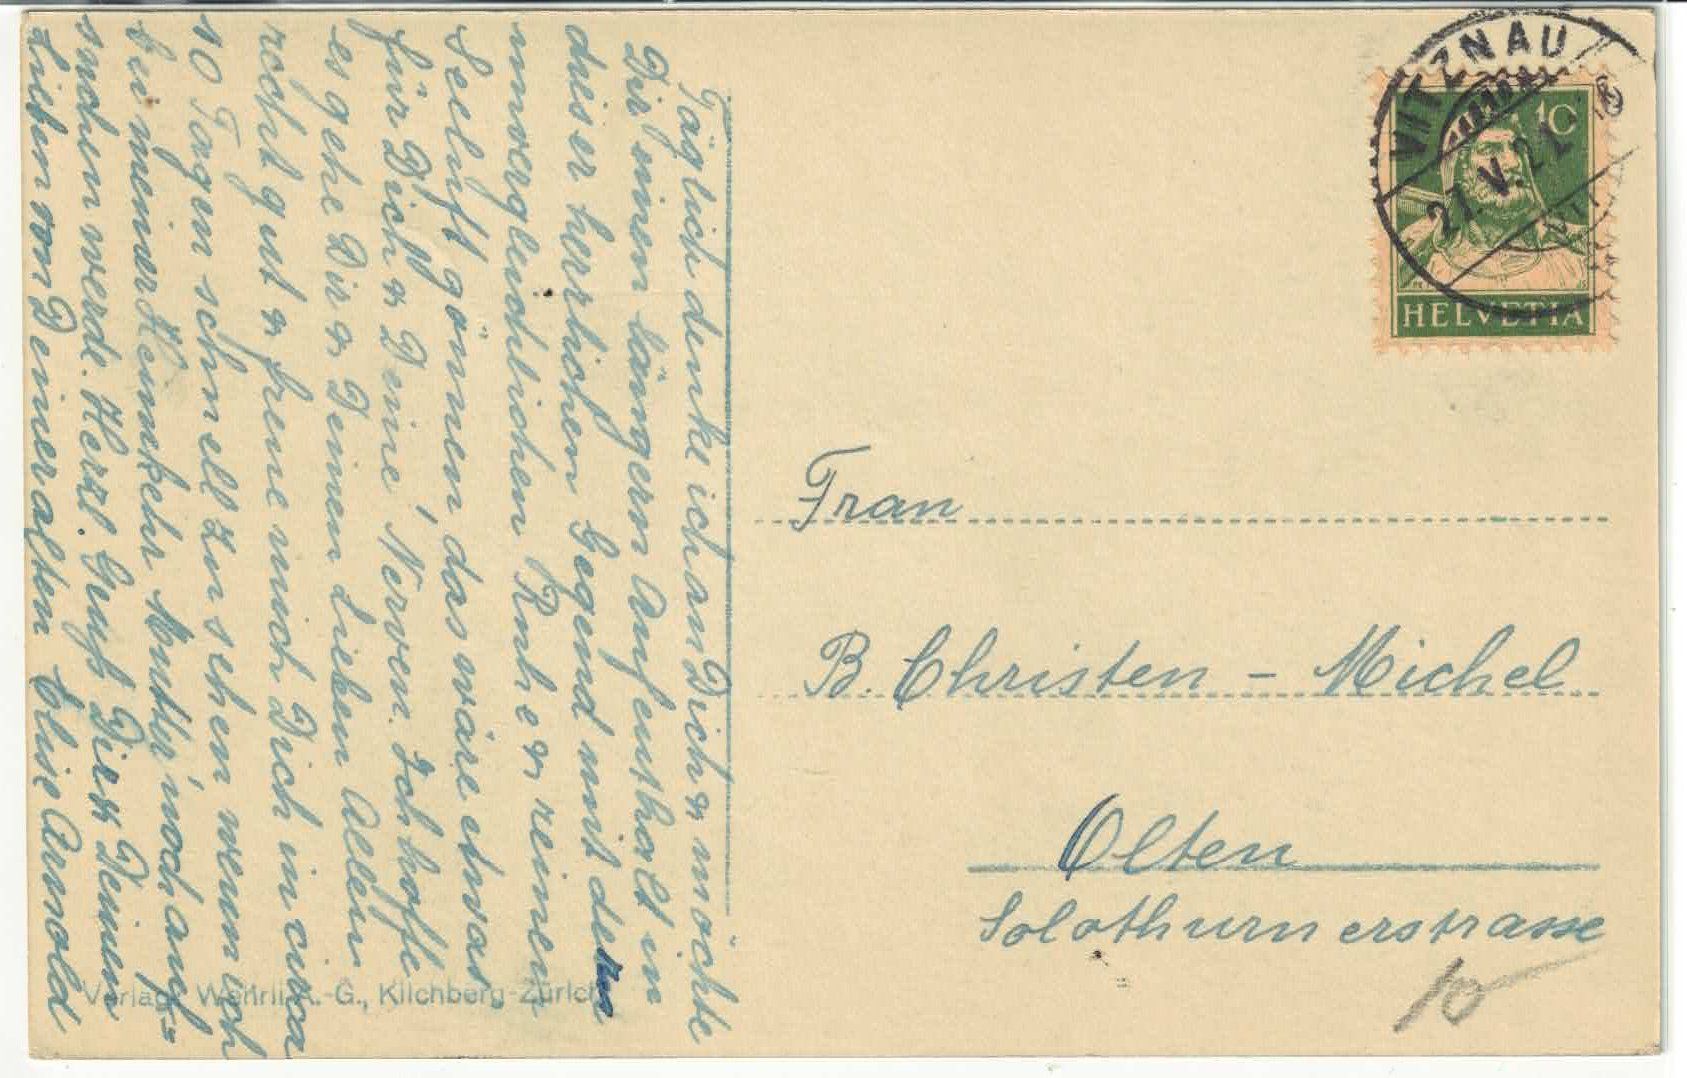 Täglich denke ich an Dich u möchte
Dir einen längern Aufenthalt in
dieser herrlichen Gegend mit deren
unvergleichlichen Ruhe u reinen
Seeluft gönnen, das wäre etwas
für Dich u Deine Nerven. Ich hoffe
es gehe Dir u Deinen Lieben Allen
recht gut u freue mich Dich in circa
10 Tagen schnell zu sehen wenn ich
bei meiner Heimkehr Mutter noch auf-
suchen werde. Herzl. Gruß Dir u Deinen
Lieben von Deiner alten Elise Arnold
Verlag: Wehrli A.-G., Kilchberg-Zürich
VITZNAU
10
HELVETIA
Frau
B. Christen - Michel
Olten
Solothurnerstrasse
10